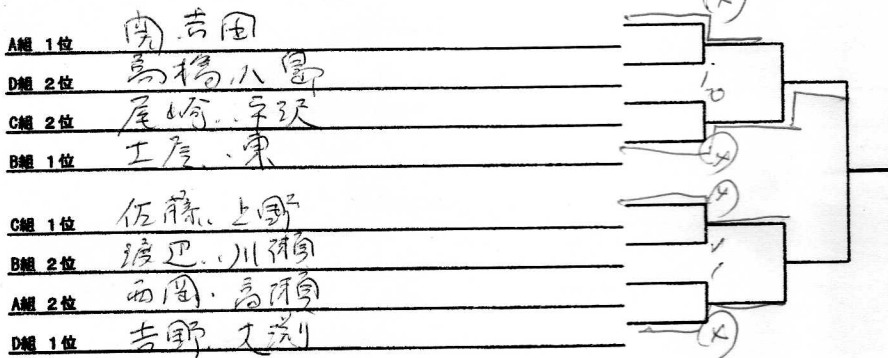 ④
A組 1位 関.吉田
D組 2位 高橋.小野
C組 2位 尾崎.宇沢
B組 1位 土屋.東
④
C組 1位 佐藤.上野
④
B組 2位 渡辺.川瀬
A組 2位 西岡.高瀬
D組 1位 吉野.大渕
④